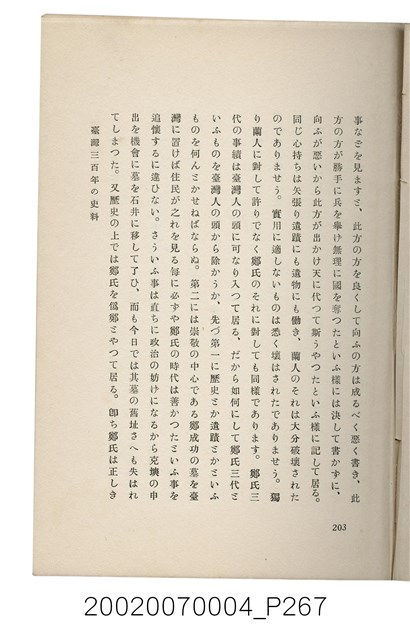 事などを見ますと、此方の方を良くして向ふの方は成るべく惡く書き、此
方の方が勝手に兵を擧け無理に國を奪つたといふ樣には決して書かずに、
向ふが惡いから此方が出かけ天に代つて斯うやつたといふ樣に記して居る。
同じ心持ちは矢張り遺蹟にも遺物にも働き、蘭人のそれは大分破壞された
のでありませう。實用に適しないものは悉く壞はされたでありませう。獨
り蘭人に對して許りでなく鄭氏のそれに對しても同樣であります。鄭氏三
代の事績は臺灣人の頭に可なり入つて居る、だから如何にして鄭氏三代と
いふものを臺灣人の頭から除かうか、先づ第一に歷史とか遺蹟とかといふ
ものを何んとかせねばならぬ。第二には崇敬の中心である鄭成功の墓を臺
灣に置けば住民が之れを見る每に必ずや鄭氏の時代は善かつたといふ事を
追懷するに違ひない。さういふ事は直ちに政治の妨けになるから克塽の申
出を機會に墓を石井に移して了ひ、而も今日では其墓の舊址さへも失はれ
てしまつた。又歷史の上では鄭氏を僞鄭とやつて居る。卽ち鄭氏は正しき
臺灣三百年の史料
203
20020070004_P267